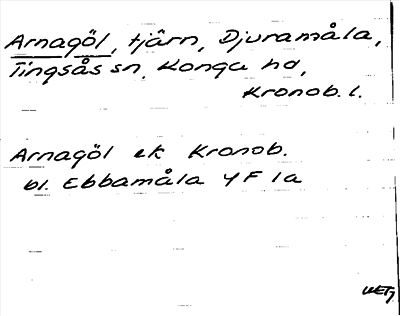 Arnagöl, tjärn, Djuramåla,
Tingsås sn. Konga hd,
Kronob. l.
Arnagöl ek Kronob.
bl. Ebbamåla 4 F 1a